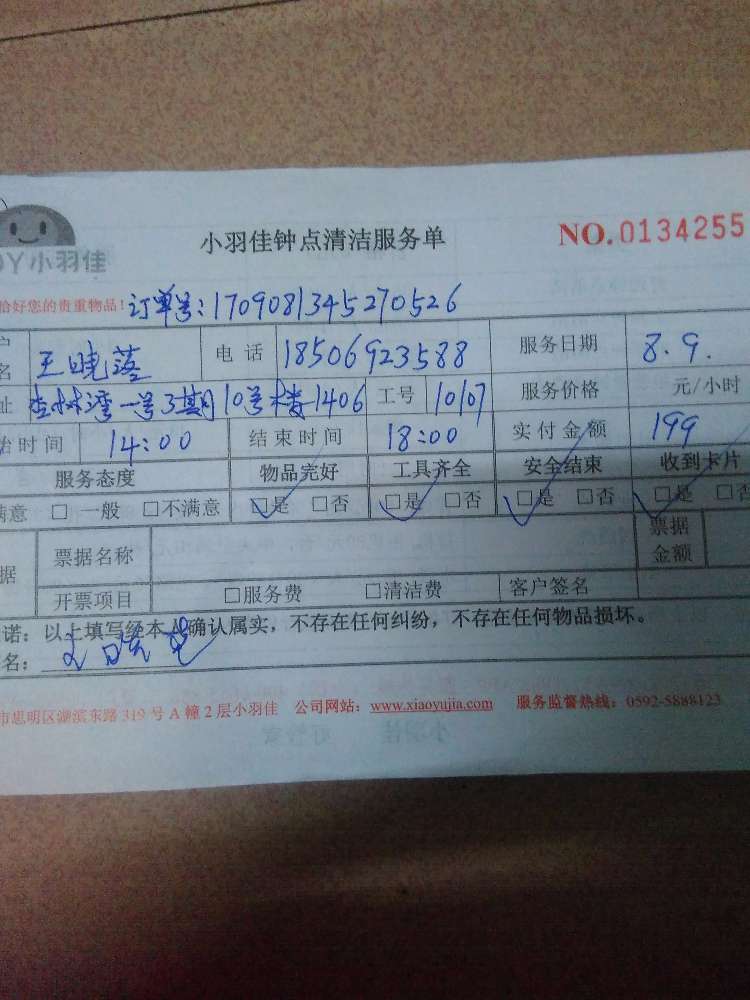 小羽佳钟点清洁服务单 NO.0134255
DY小羽佳
恰好您的贵重物品！订单号：1709081345270526
户名 王晓莲 电话 18506923588 服务日期 8.9.
址 杏林湾一号3期10号楼1406 工号 10107 服务价格 元/小时
始时间 14:00 结束时间 18:00 实付金额 199
服务态度 物品完好 工具齐全 安全结束 收到卡片
满意 □一般 □不满意 □是 □否 □是 □否 □是 □否 □是 □否
据 票据名称 票据金额
开票项目 □服务费 □清洁费 客户签名
诺：以上填写经本人确认属实，不存在任何纠纷，不存在任何物品损坏。
名：
市思明区湖滨东路319号A幢2层小羽佳 公司网站：www.xiaoyujia.com 服务监督热线：0592-5888123